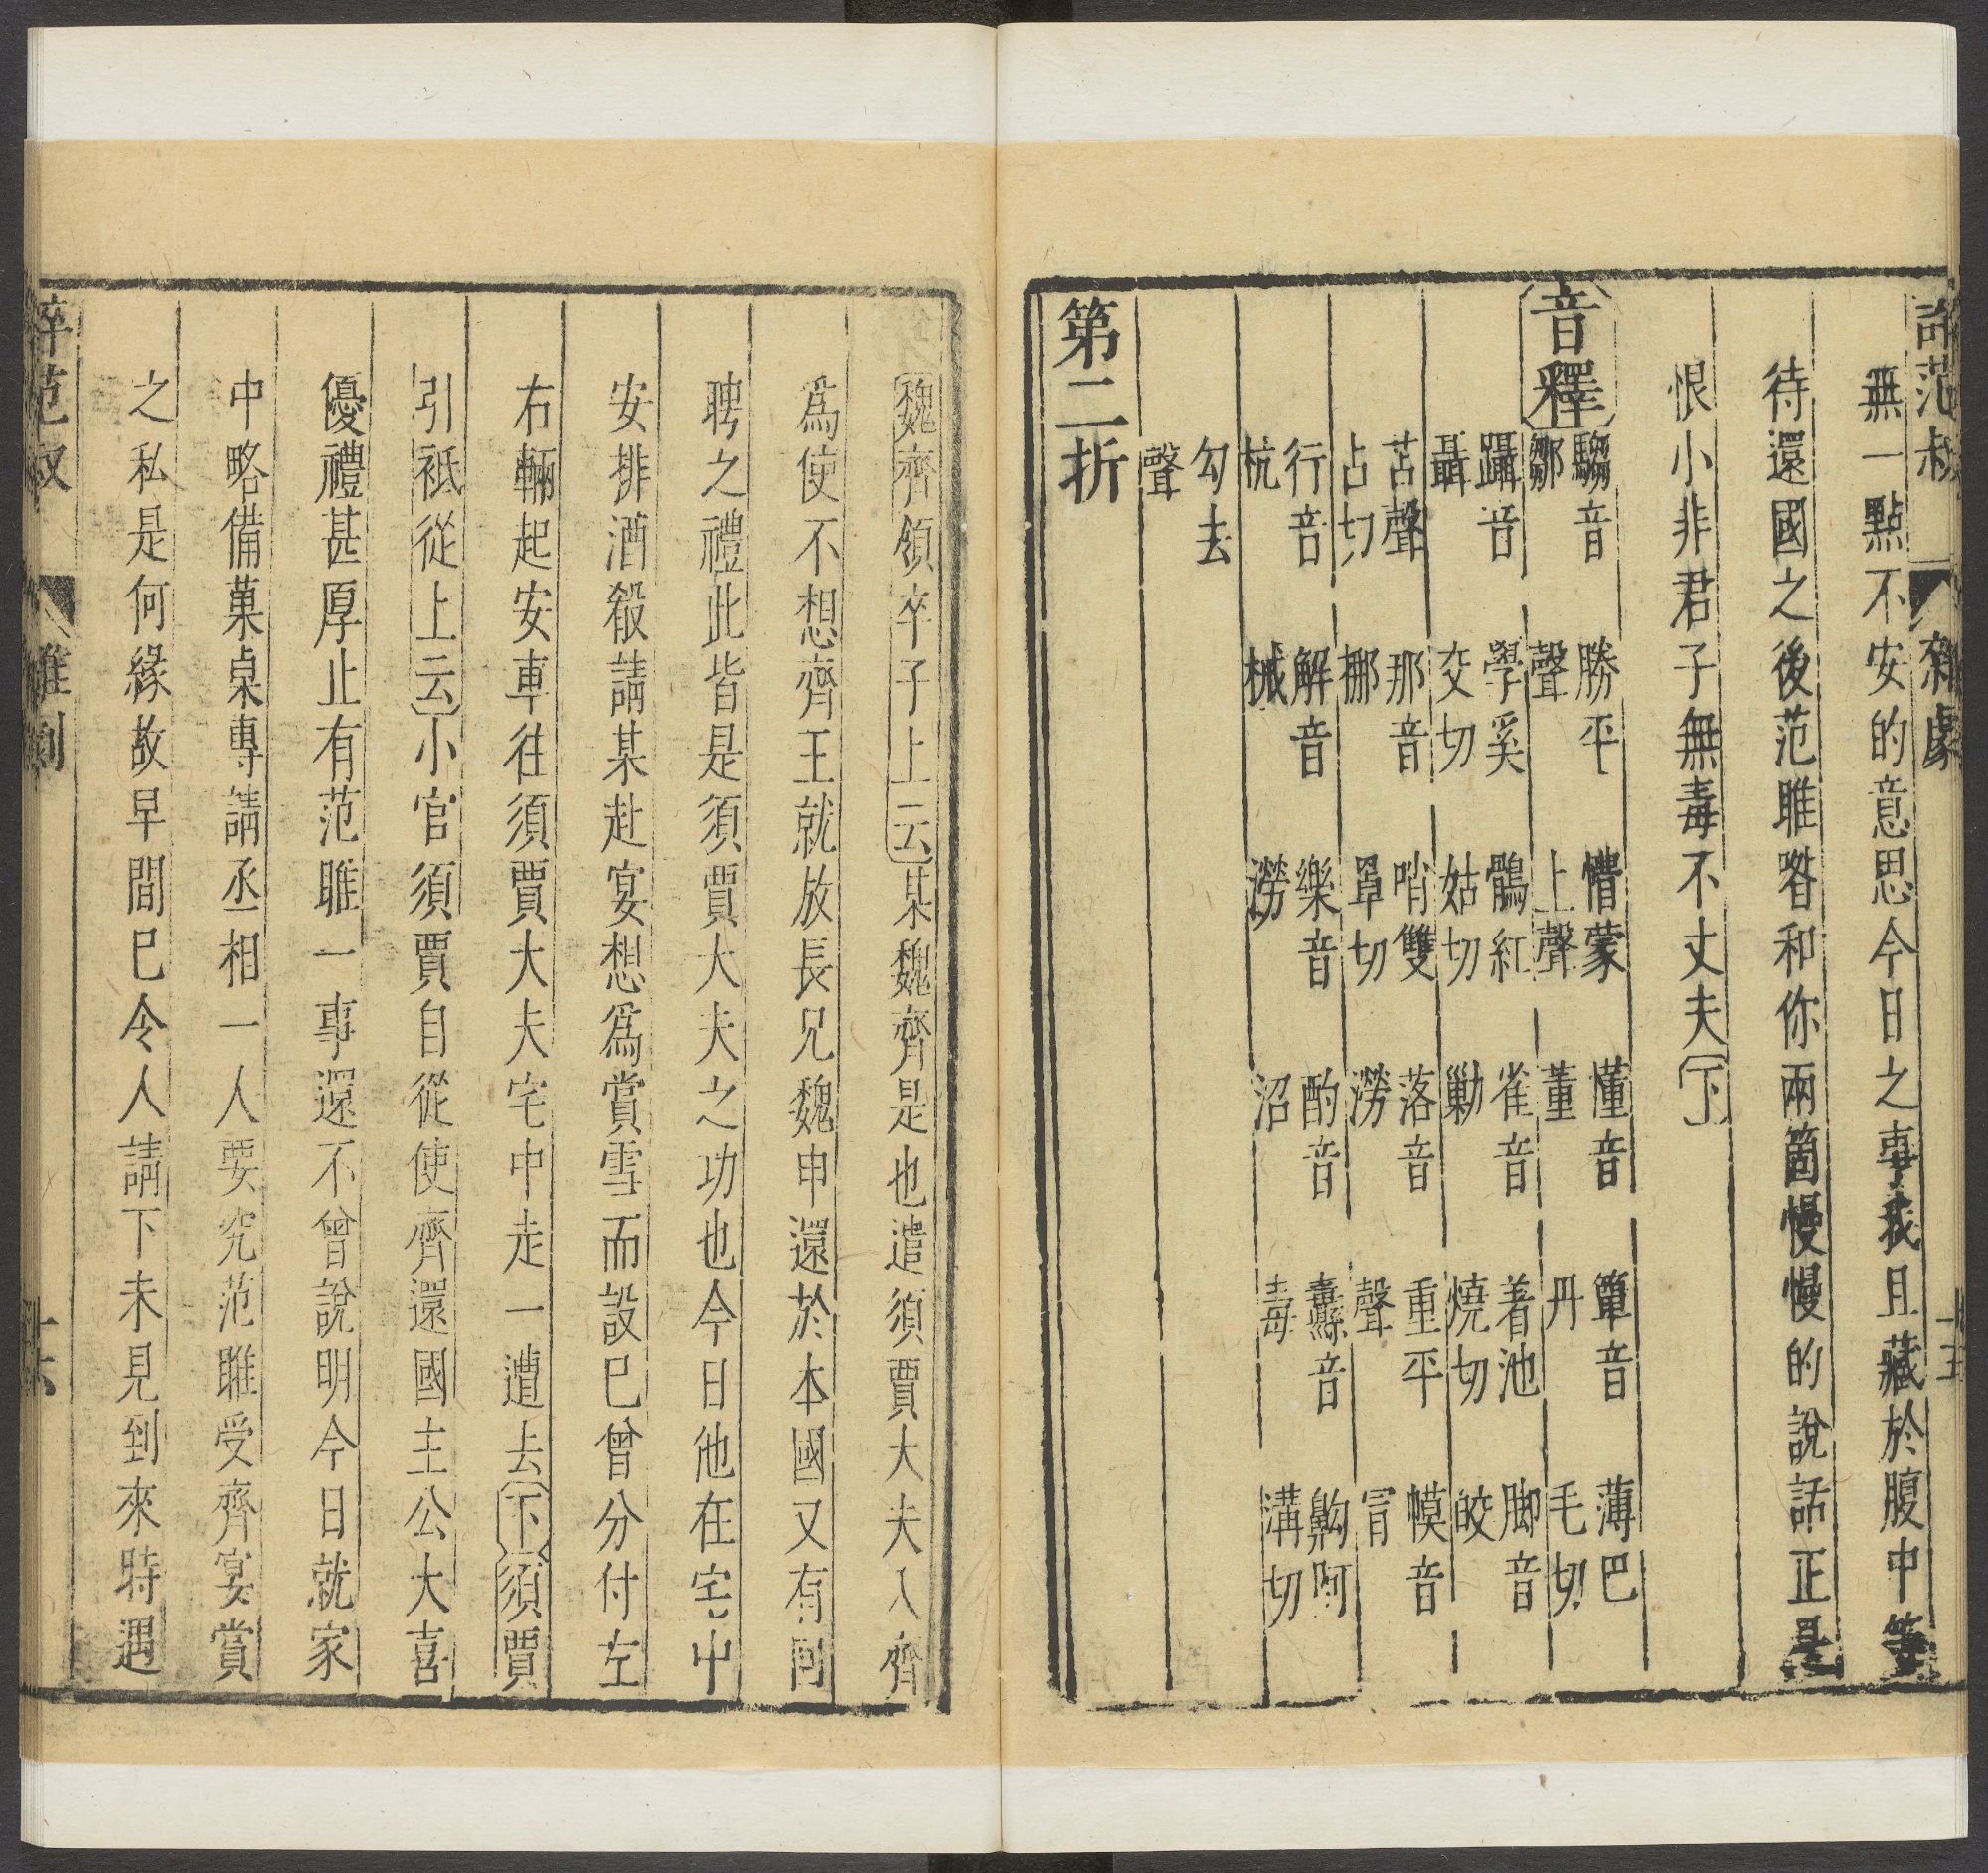 誶范叔 雜劇 十五
無一點不安的意思今日之事我且藏於腹中等
待還國之後范雎喒和你兩箇慢慢的說話正是
恨小非君子無毒不丈夫〔下〕
〔音釋〕騶音鄒 勝平聲 懵蒙上聲 懂音董 簞音丹 薄巴毛切
躡音聶 學奚交切 鶻紅姑切 雀音勦 着池燒切 脚音皎
苫聲占切 那音挪 哨雙罩切 落音澇 重平聲 幙音冒
行音杭 解音械 樂音澇 酌音沼 纛音毒 齁呵溝切
勾去聲
第二折
〔魏齊領卒子上云〕某魏齊是也遣須賈大夫入齊
爲使不想齊王就放長兄魏申還於本國又有回
聘之禮此皆是須賈大夫之功也今日他在宅中
安排酒殽請某赴宴想爲賞雪而設已曾分付左
右輛起安車往須賈大夫宅中走一遭去〔下〕〔須賈
引祗從上云〕小官須賈自從使齊還國主公大喜
優禮甚厚止有范雎一事還不曾說明今日就家
中略備菓桌專請丞相一人要究范雎受齊宴賞
之私是何緣故早間已令人請下未見到來時遇
誶范叔 雜劇 十六